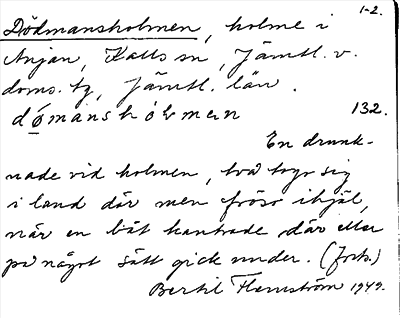 1-2.
Dödmansholmen, holme i
Anjan, Kalls sn, Jämtl. v.
doms. tg, Jämtl. län.
dømanshólmen 132.
En drunk-
nade vid holmen, två togo sig
i land där men fröso ihjäl,
när en båt kantrade där eller
på något sätt gick under. (forts.)
Bertil Flemström 1949.